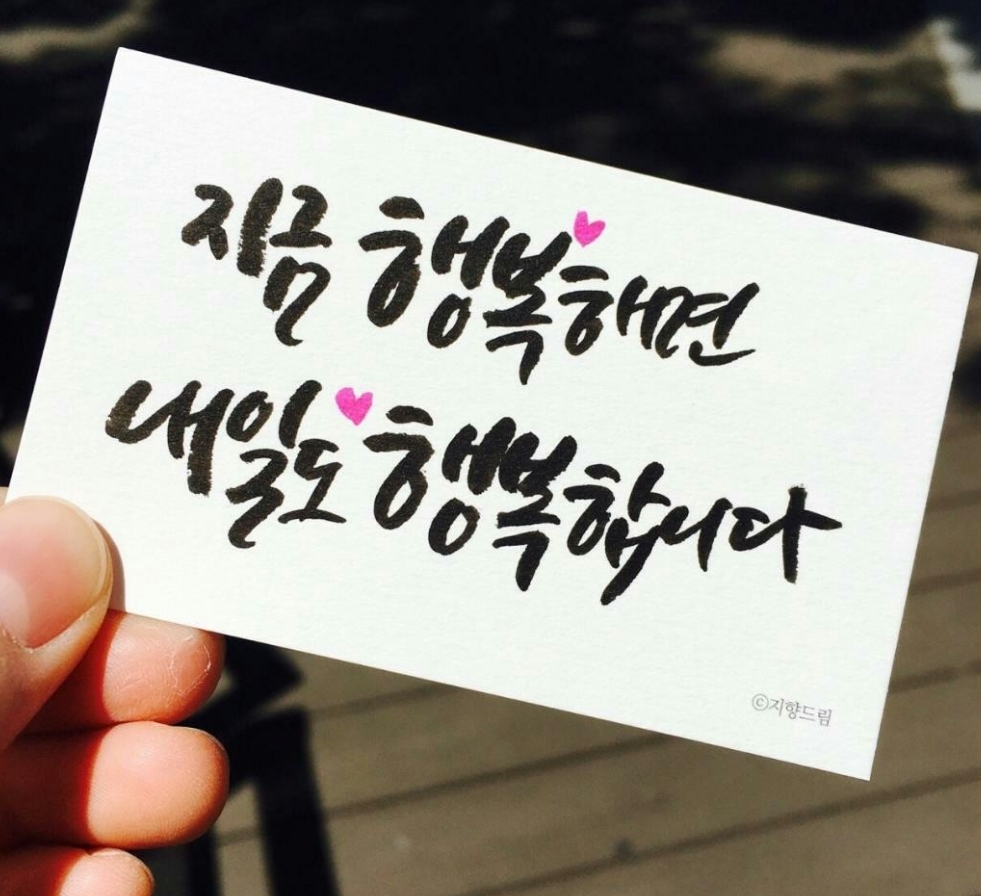 지금 행복하면
내일도 행복합니다
©지향드림